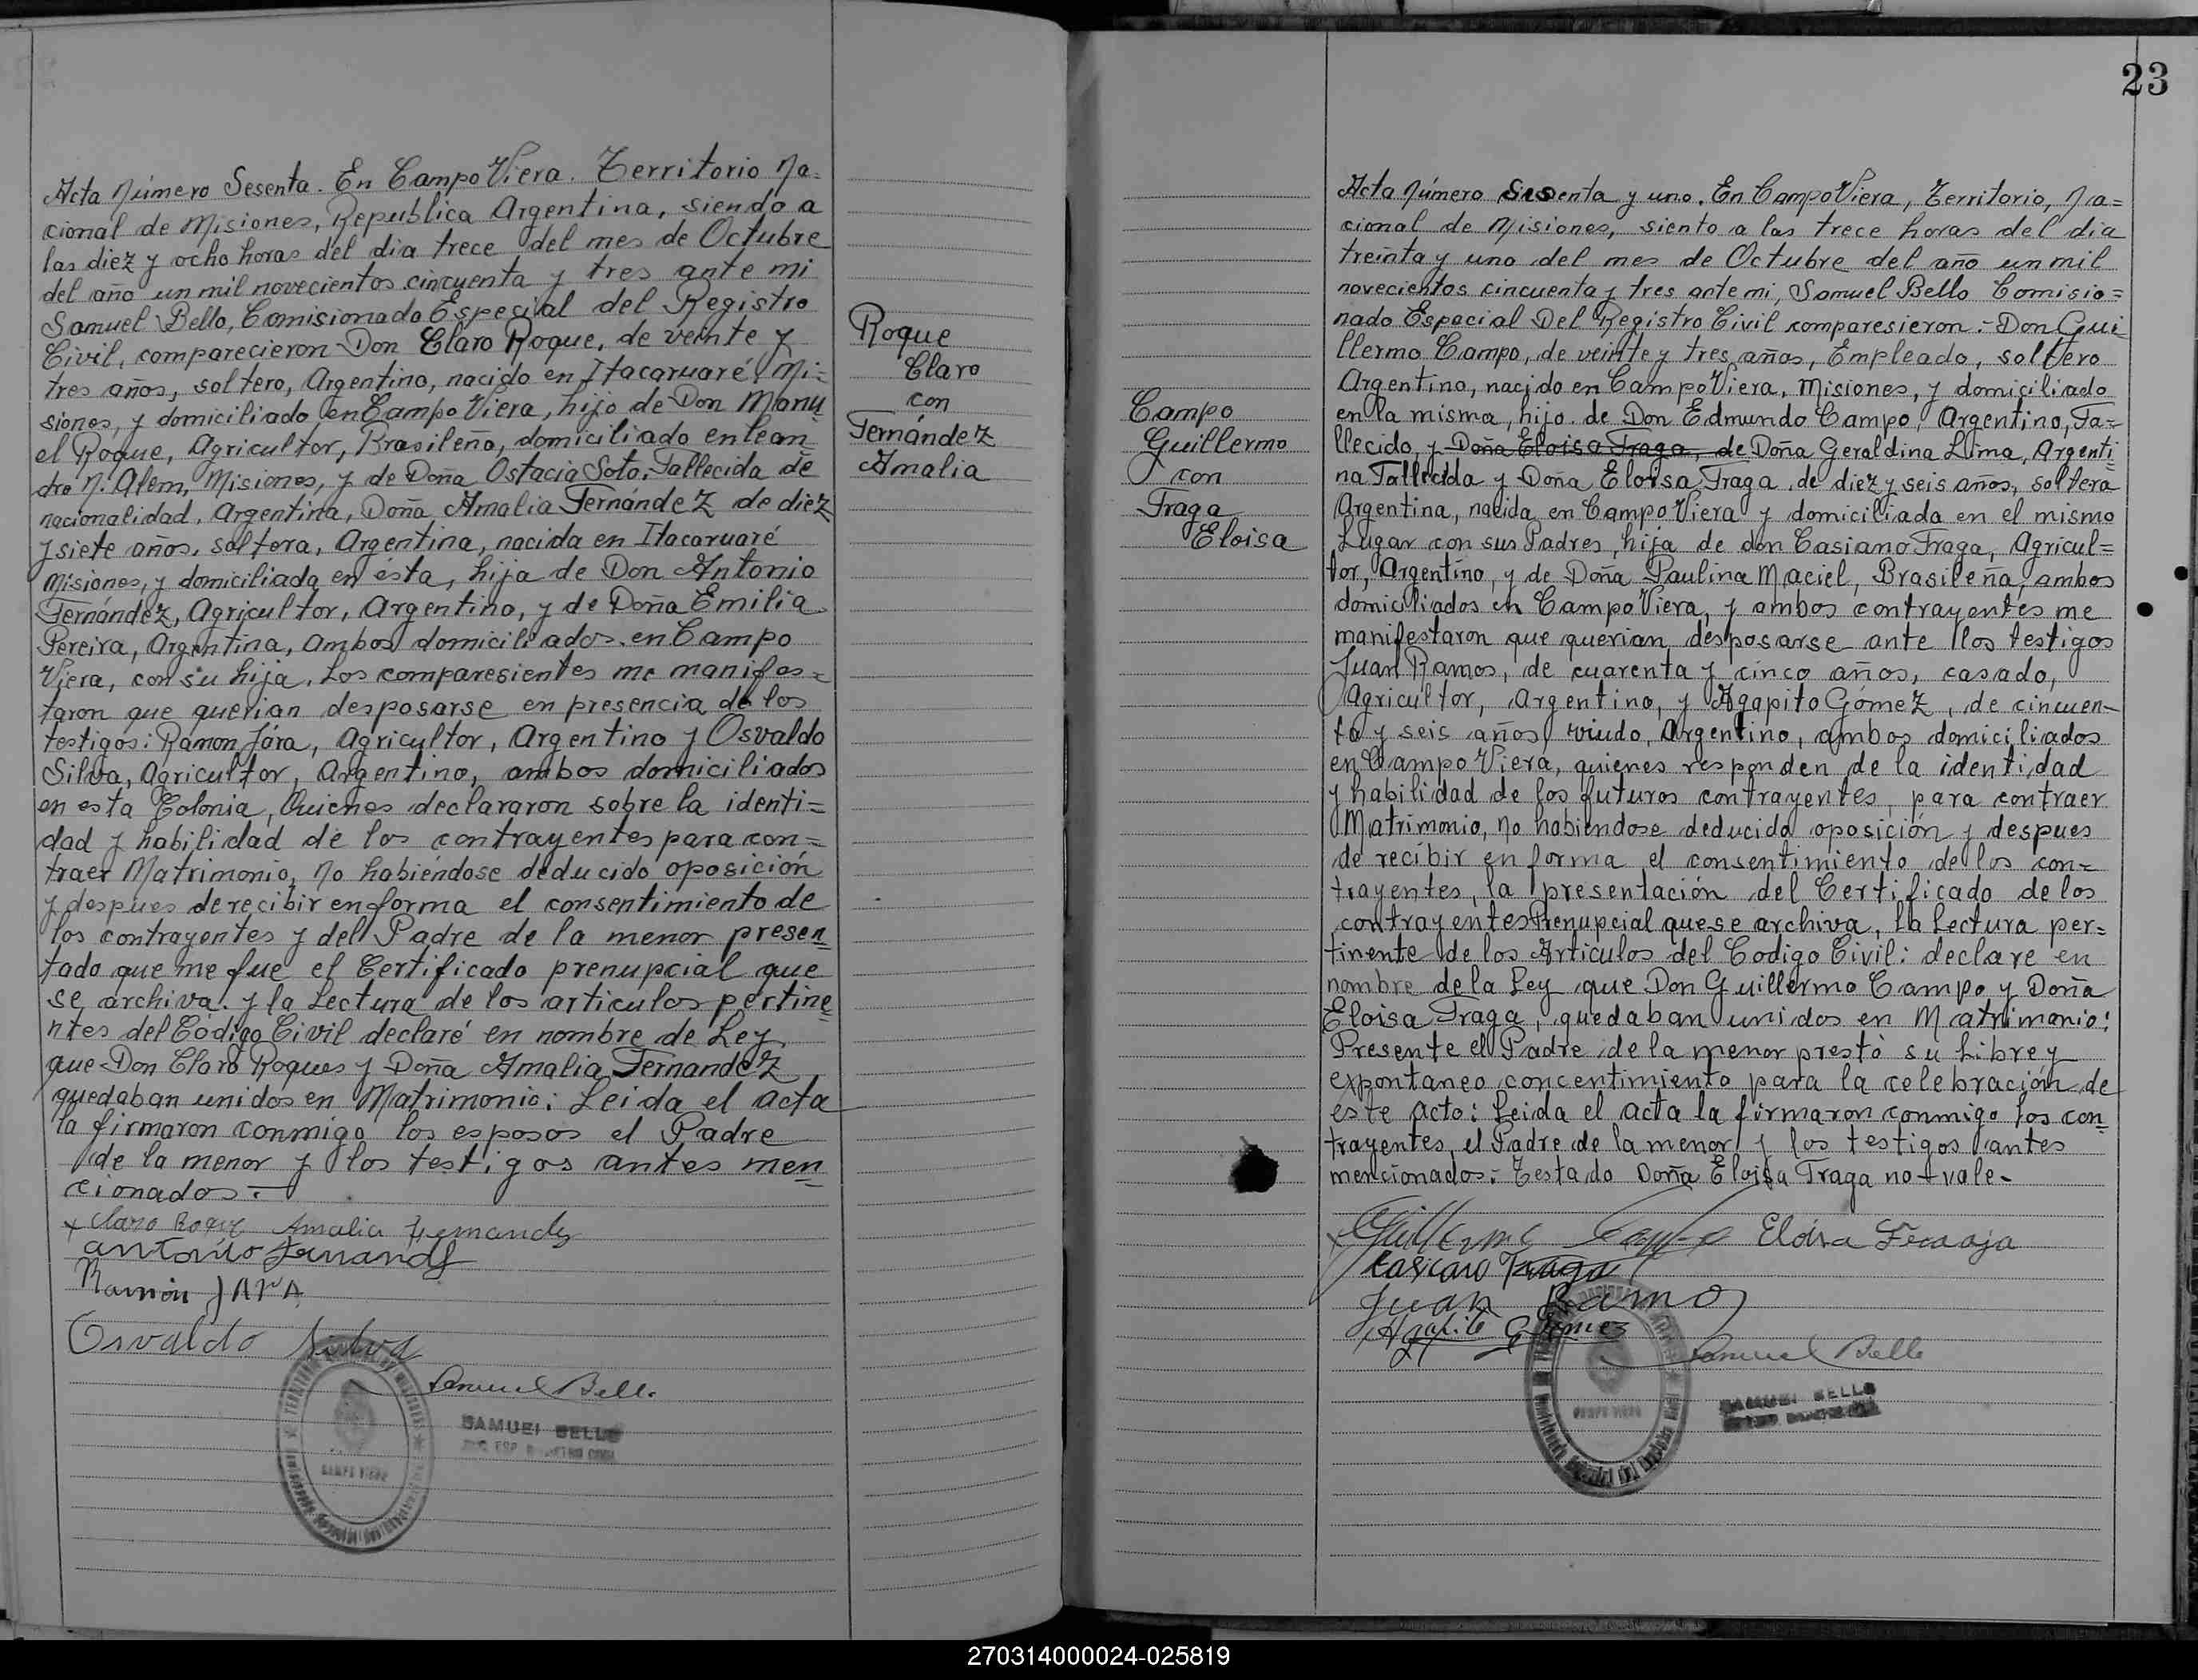 Acta Número Sesenta. En Campo Viera. Territorio Na=
cional de Misiones, Republica Argentina, siendo a
las diez y ocho horas del dia trece del mes de Octubre
del año un mil novecientos cincuenta y tres ante mi
Samuel Bello, Comisionado Especial del Registro
Civil, comparecieron Don Claro Roque, de veinte y
tres años, soltero, Argentino, nacido en Itacaruaré, Mi=
siones, y domiciliado en Campo Viera, hijo de Don Manu
el Roque, Agricultor, Brasileño, domiciliado en Lean
dro N. Alem, Misiones, y de Doña Ostacia Soto, Fallecida de
nacionalidad, Argentina, Doña Amalia Fernández de diez
y siete años, soltera, Argentina, nacida en Itacaruaré
Misiones, y domiciliada en ésta, hija de Don Antonio
Fernández, Agricultor, Argentino, y de Doña Emilia
Pereira, Argentina, ambos domiciliados en Campo
Viera, con su hija. Los comparesientes me manifes=
taron que querian desposarse en presencia de los
testigos: Ramon Jára, Agricultor, Argentino y Osvaldo
Silva, Agricultor, Argentino, ambos domiciliados
en esta Colonia, Quienes declararon sobre la identi=
dad y habilidad de los contrayentes para con=
traer Matrimonio, No habiéndose deducido oposición
y despues de recibir en forma el consentimiento de
los contrayentes y del Padre de la menor presen
tado que me fue el Certificado prenupcial que
se archiva. y la Lectura de los articulos pertine
ntes del Código Civil declaré en nombre de Ley
que Don Claro Roques y Doña Amalia Fernandez
quedaban unidos en Matrimonio: Leida el acta
la firmaron conmigo los esposos el Padre
de la menor y los testigos antes men
cionados.-
Roque
Claro
con
Fernández
Amalia
x Claro Roque Amalia Fernandez
Antonio Fernandez
Ramón JARA
Osvaldo Silva
Samuel Bello
SAMUEL BELLO
CAMPO VIERA
23
Campo
Guillermo
con
Fraga
Eloisa
Acta Número Sesenta y uno. En Campo Viera, Territorio, Na=
cional de Misiones, siento a las trece horas del dia
treinta y uno del mes de Octubre del año un mil
novecientos cincuenta y tres ante mi, Samuel Bello Comisio=
nado Especial Del Registro Civil comparesieron:- Don Gui
llermo Campo, de veinte y tres años, Empleado, soltero
Argentino, nacido en Campo Viera, Misiones, y domiciliado
en la misma, hijo de Don Edmundo Campo, Argentino, Fa=
llecido, y Doña Eloisa Fraga, de Doña Geraldina Lima, Argenti
na Fallecida y Doña Eloisa Fraga de diez y seis años, soltera
Argentina, nacida en Campo Viera y domiciliada en el mismo
Lugar con sus Padres, hija de don Casiano Fraga, Agricul=
tor, Argentino, y de Doña Paulina Maciel, Brasileña, ambos
domiciliados en Campo Viera, y ambos contrayentes me
manifestaron que querian desposarse ante los testigos
Juan Ramos, de cuarenta y cinco años, casado,
Agricultor, Argentino, y Agapito Gómez, de cincuen-
ta y seis años, viudo, Argentino, ambos domiciliados
en Campo Viera, quienes responden de la identidad
y habilidad de los futuros contrayentes, para contraer
Matrimonio, no habiendose deducido oposición y despues
de recibir en forma el consentimiento de los con-
trayentes, la presentación del Certificado de los
contrayentes Prenupcial que se archiva, la Lectura per=
tinente de los Articulos del Codigo Civil: declare en
nombre de la Ley que Don Guillermo Campo y Doña
Eloisa Fraga, quedaban unidos en Matrimonio:
Presente el Padre de la menor prestó su Libre y
expontaneo concentimiento para la celebración de
este acto: Leida el acta la firmaron conmigo los con
trayentes, el Padre de la menor y los testigos antes
mencionados:- Testado Doña Eloisa Fraga no-vale-
x Guillermo Campo Eloisa Fraga
Casiano Fraga
Juan Ramos
Agapito Gómez
Samuel Bello
SAMUEL BELLO
CAMPO VIERA
270314000024-025819